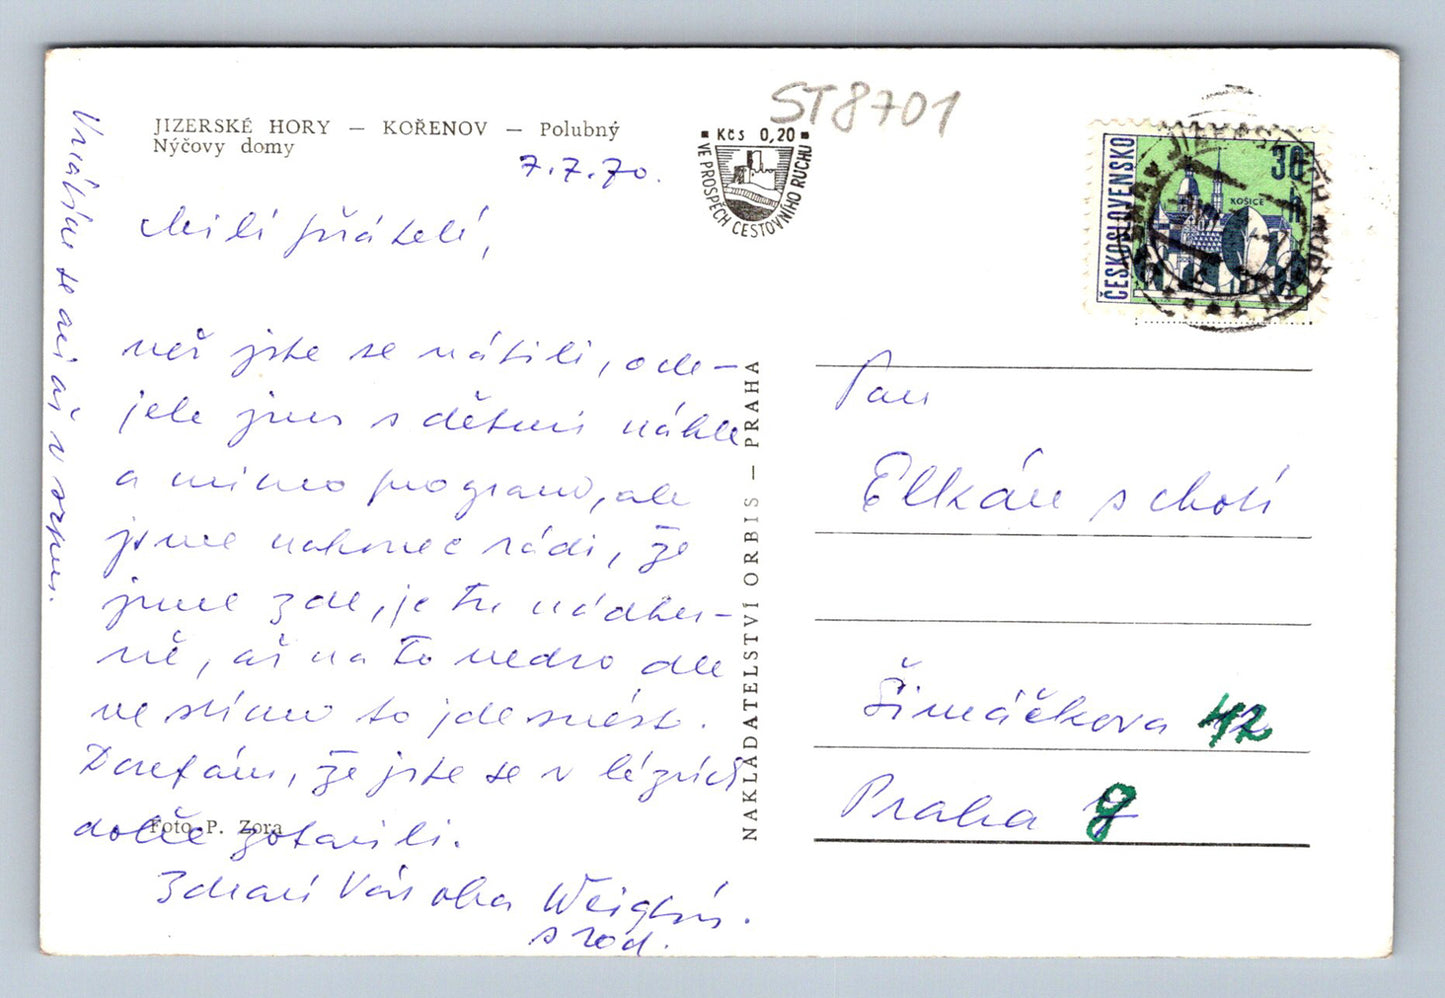 ST8701
JIZERSKÉ HORY — KOŘENOV — Polubný
Nýčovy domy
Kčs 0,20
VE PROSPĚCH CESTOVNÍHO RUCHU
ČESKOSLOVENSKO
30
h
KOŠICE
7.7.70.
Milí přátelé,
než jste se vrátili, ode-
jela jsem s dětmi náhle
a mimo program, ale
jsme nakonec rádi, že
jsme zde, je tu nádher-
ně, až na to vedro ale
ve stínu to jde snést.
Doufám, že jste se v lázních
dobře zotavili.
Zdraví Vás oba
s rod.
Vrátíme se asi až v srpnu.
Foto P. Zora
NAKLADATELSTVÍ ORBIS — PRAHA
Pan
Elkán s chotí
Šimáčkova 12
Praha